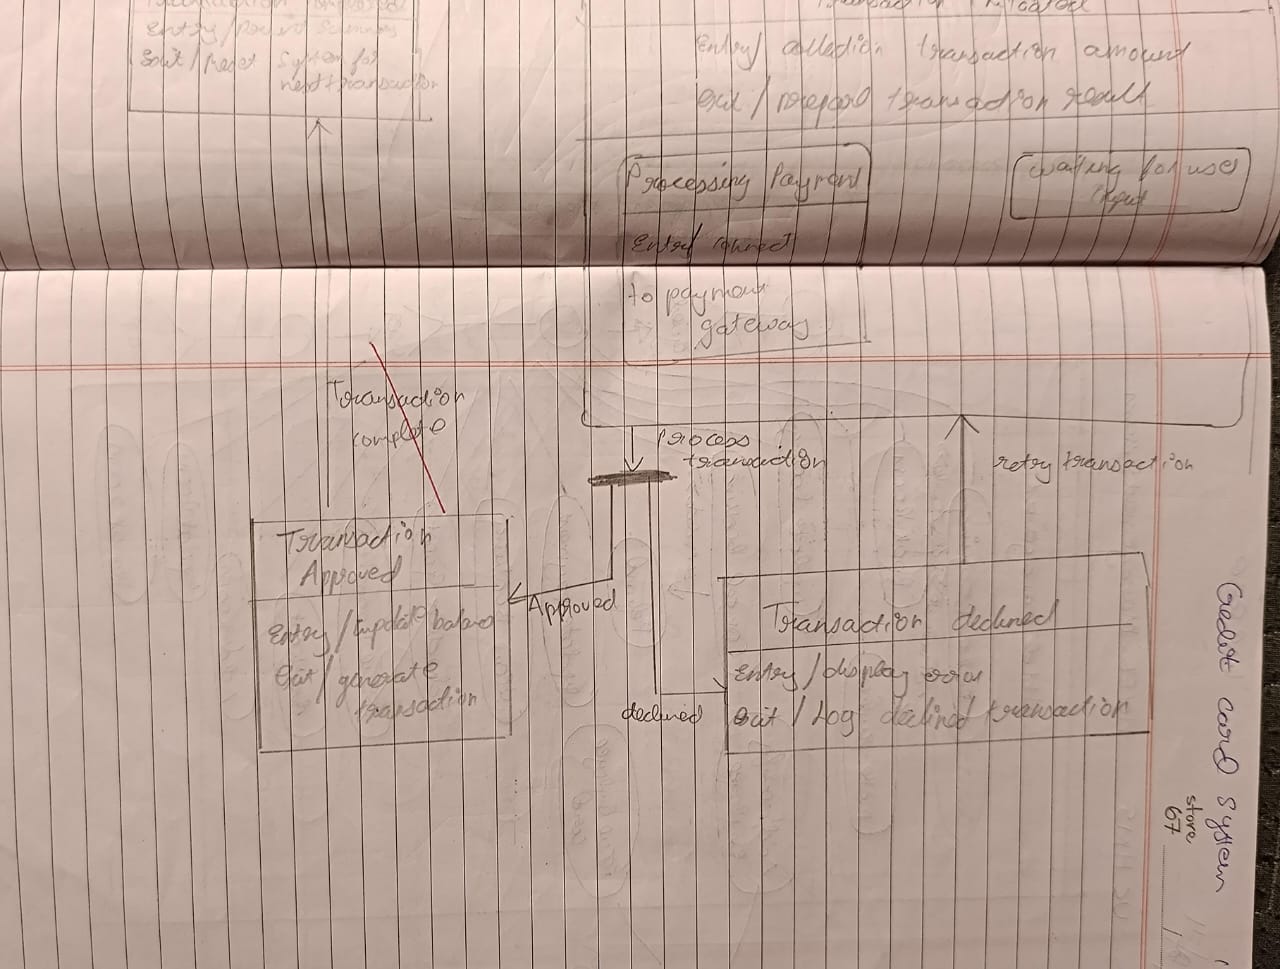 Entry/
Exit / reset System for
next transaction
Entry/ collection transaction amount
Exit / transaction result
Processing Payment
Entry/ connect
to payment
gateway
waiting for user
input
Transaction
complete
Process
transaction
retry transaction
Transaction
Approved
Entry / update balance
Exit / generate
transaction
Approved
declined
Transaction declined
Entry / display error
Exit / Log declined transaction
Credit card System
store
67